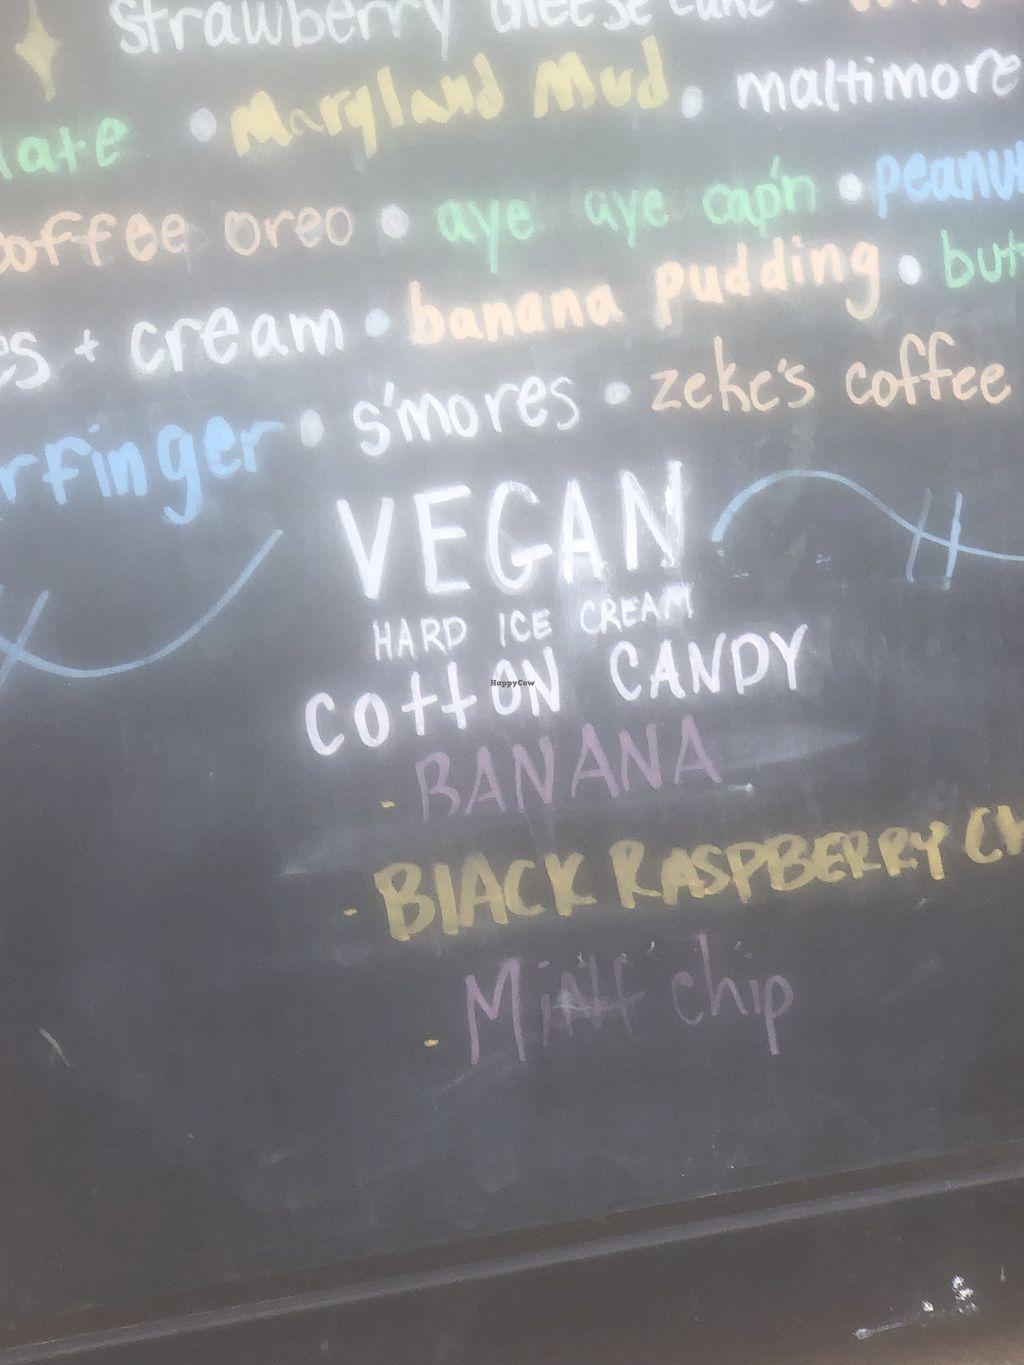 strawberry cheesecake
late • Maryland Mud • maltimore
coffee oreo • aye aye cap'n • peanut
es + cream • banana pudding • but
rfinger • s'mores • zeke's coffee
VEGAN
HARD ICE CREAM
COttON CANDY
HappyCow
- BANANA
- BlACK RASPBERRY CH
- Mint chip